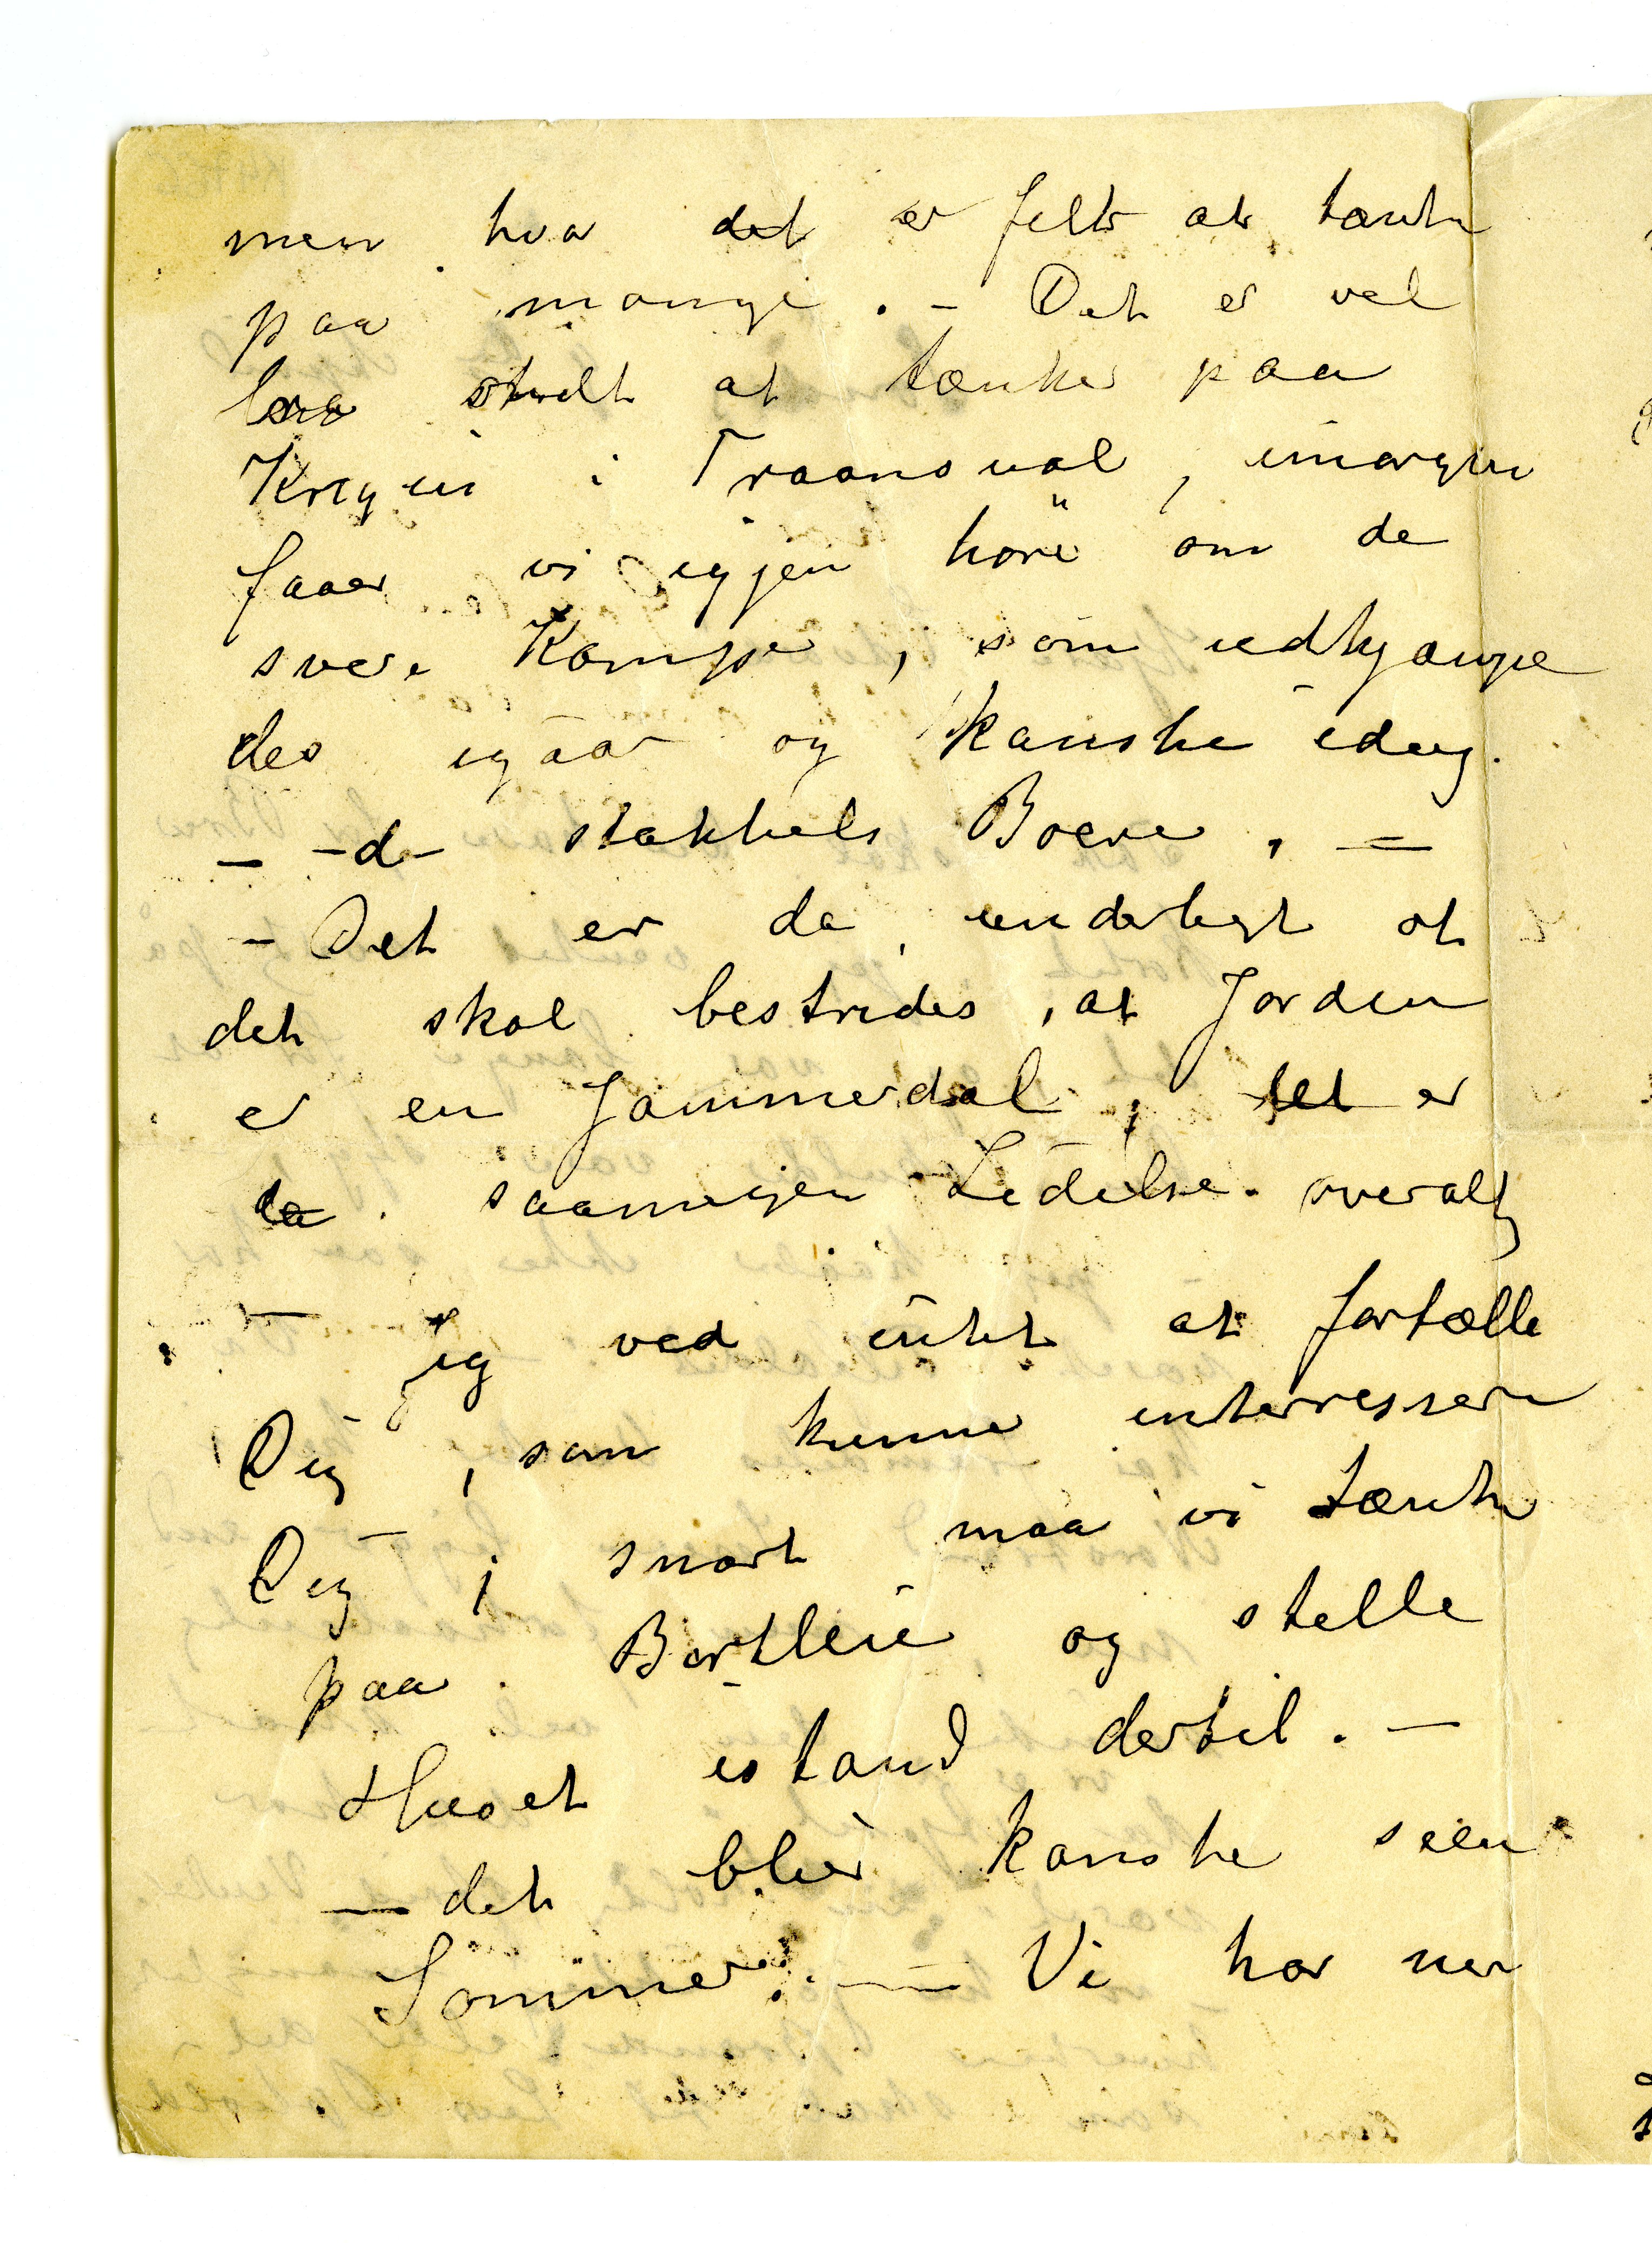 men hva det er felt at tænke
paa mange . – Det er vel
bra stridt at tænke paa
Krigen i Traansval , imorgen
faaer vi igjen høre om de
svere Kampe , som udkjæmpe
des igaar og kanske idag.
– – de stakkels Boere , =
– Det er da underligt at
det skal bestrides , at Jorden
er en Jammerdal , det er
da saamegen Lidelse overalt
– jeg ved intet at fortælle
Dig , som kunne interressere
Dig , snart maa vi tænke
paa Bortleie og stelle
Huset istand dertil . –
– det blir kanske siden
Sommer . — Vi har nu